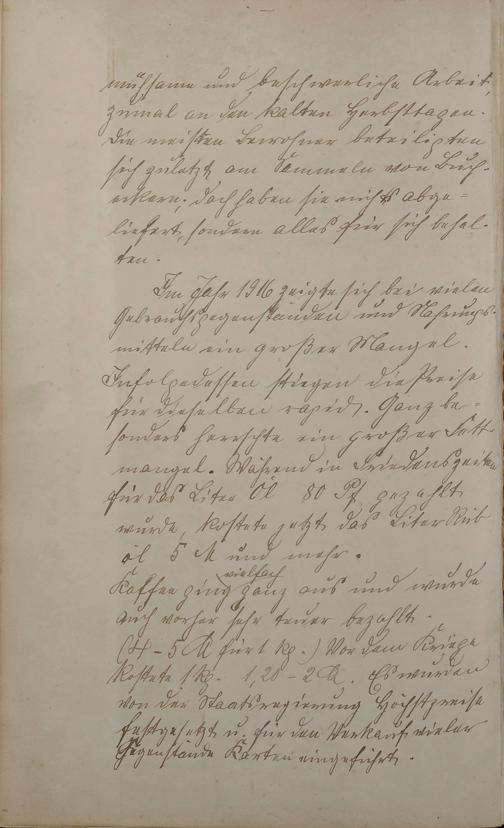 mühsame und beschwerliche Arbeit,
zumal an den kalten Herbsttagen.
Die meisten Bewohner beteiligten
sich zuletzt am Sammeln von Buch-
eckern; doch haben sie nichts abge=
liefert, sondern alles für sich behal-
ten.
Im Jahr 1916 zeigte sich bei vielen
Gebrauchsgegenständen und Nahrungs-
mitteln ein großer Mangel.
Infolgedessen stiegen die Preise
für dieselben rapid. Ganz be=
sonders herrschte ein großer Fett-
mangel. Während in Friedenszeiten
für das Liter Öl 80 Pf gezahlt
wurde, kostete jetzt das Liter Rüb
öl 5 M und mehr.
Kaffee ging vielfach ganz aus und wurde
auch vorher sehr teuer bezahlt.
(4-5 M für 1 kg.) Vor dem Kriege
kostete 1 kg. 1,20-2 M. Es wurden
von der Staatsregierung Höchstpreise
festgesetzt u. für den Verkauf vieler
Gegenstände Karten eingeführt.